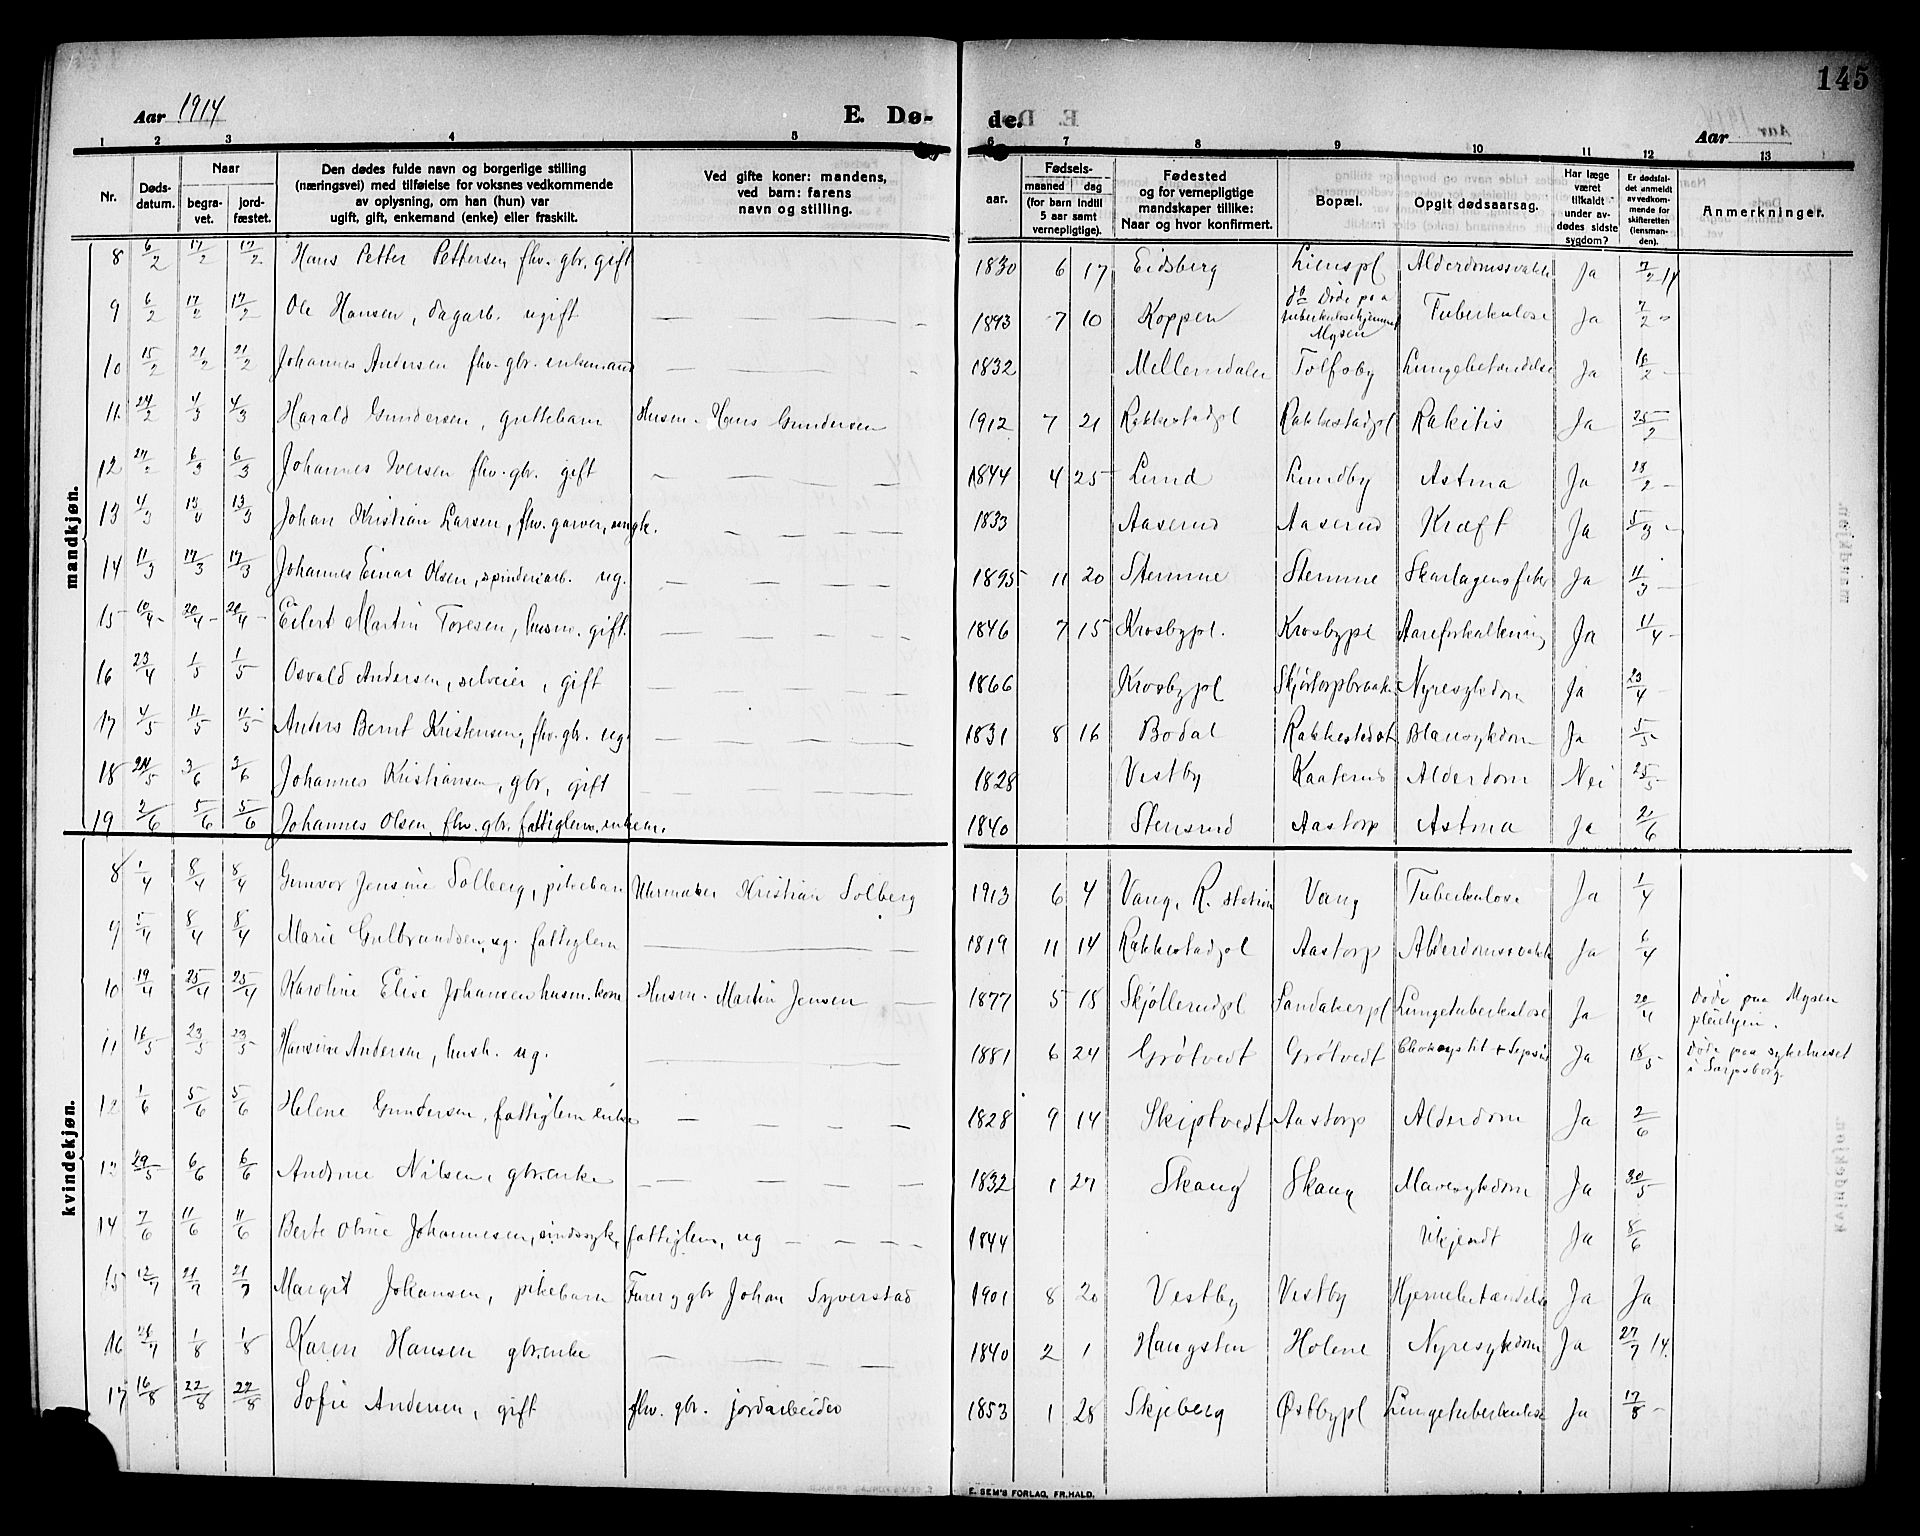 145
Aar 1914 E. Dø- de. Aar
1 2 3 4 5 6 7 8 9 10 11 12 13
Nr. Døds-datum. Naar begra-vet. jord-fæstet. Den dødes fulde navn og borgerlige stilling (næringsvei) med tilføielse for voksnes vedkommende av oplysning, om han (hun) var ugift, gift, enkemand (enke) eller fraskilt. Ved gifte koner: mandens, ved barn: farens navn og stilling. Fødsels- aar. maaned dag (for barn indtil 5 aar samt vernepligtige). Fødested og for vernepligtige mandskaper tillike: Naar og hvor konfirmert. Bopæl. Opgit dødsaarsag. Har læge været tilkaldt under av-dødes sidste sygdom? Er dødsfal-det anmeldt av vedkom-mende for skifteretten (lensman-den). Anmerkninger.
mandkjøn.
8 6/2 17/2 17/2 Hans Petter Pettersen fhv. gbr. gift 1830 6 17 Eidsberg Lienspl Alderdomssvakke Ja 7/2 14
9 6/2 17/2 17/2 Ole Hansen, dagarb. ugift 1893 7 10 Koppen do Døde paa tuberkulosehjemmet Mysen Tuberkulose Ja 7/2 "
10 15/2 21/2 21/2 Johannes Andersen fhv. gbr. enkemand 1832 Mellemdalen Tolfsby Lungebetændelse Ja 16/2 -
11 24/2 4/3 4/3 Harald Gundersen, guttebarn Husm. Hans Gundersen 1912 7 21 Rakkestadpl Rakkestadpl Rakitis Ja 25/2
12 27/2 6/3 6/3 Johannes Iversen fhv. gbr. gift 1844 4 25 Lund Lundby Astma Ja 28/2 -
13 4/3 13/3 13/3 Johan Kristian Larsen, fhv. garver, ungk. 1833 Aaserud Aaserud Kræft Ja 5/3 -
14 11/3 17/3 17/3 Johannes Einar Olsen, spinderiarb. ug. 1895 11 20 Stemme Stemme Skarlagensfeber Ja 11/3 -
15 10/4 - 20/4 - 20/4 - Eilert Martin Toresen, husm. gift. 1846 7 15 Krosbypl. Krosbypl Aareforkalkning Ja 11/4 -
16 23/4 1/5 1/5 Osvald Andersen, selveier, gift 1866 Krosbypl Nyresykdom Ja 23/4 -
17 4/5 11/5 11/5 Anders Bernt Kristensen, fhv. gbr. ug. 1831 8 16 Bodal Rakkestad st Blæresykdom Ja 5/5
18 24/5 3/6 3/6 Johannes Kristiansen, gbr, gift 1828 Vestby Kaaterud Alderdom Nei 25/5
19 2/6 5/6 5/6 Johannes Olsen, fhv. gbr. fattiglem. enkem. 1840 Stensrud Aastorp Astma Ja 2/6
kvindekjøn.
8 1/4 8/4 8/4 Gunvor Jensine Solberg, pikebarn Urmaker Kristian Solberg 1913 6 4 Vang, R. station Vang Tuberkulose Ja 1/4
9 5/4 8/4 8/4 Marie Gulbrandsen, ug. fattiglem 1819 11 14 Rakkestadpl Aastorp Alderdomssvakh Ja 6/4
10 19/4 25/4 25/4 Karoline Elise Johansen husm. kone Husm. Martin Jensen 1877 5 18 Skjøllerudpl Sandakerpl Lungetuberkulose Ja 20/4 Døde paa Mysen pleiehjem.
11 16/5 23/5 23/5 Hansine Andersen, hush. ug. 1881 6 24 Grøtvedt Grøtvedt Ja 18/5 - Døde paa sykehuset i Sarpsborg.
12 1/6 5/6 5/6 Helene Gundersen, fattiglem enke 1828 9 14 Skiptvedt Aastorp Alderdom Ja 2/6
13 29/5 6/6 6/6 Andrine Nilsen, gbr.enke 1832 1 27 Skaug Skaug Mavesykdom Ja 30/5
14 7/6 11/6 11/6 Berte Oline Johannesen, sindssyk, fattiglem, ug 1844 Ukjendt Ja 8/6
15 12/7 21/7 21/7 Margit Johansen, pikebarn Farer, gbr Johan Syverstad 1901 8 20 Vestby Vestby Hjernebetændelse Ja Ja
16 26/7 1/8 1/8 Karen Hansen gbr.enke 1840 2 1 Haugsten Holene Nyresykdom Ja 27/7 14.
17 16/8 22/8 22/8 Sofie Andersen, gift fhv. gbr. jordarbeider 1853 1 28 Skjeberg Østbypl Lungetuberkulose Ja 17/8 -
E. SEM'S FORLAG, FR.HALD.